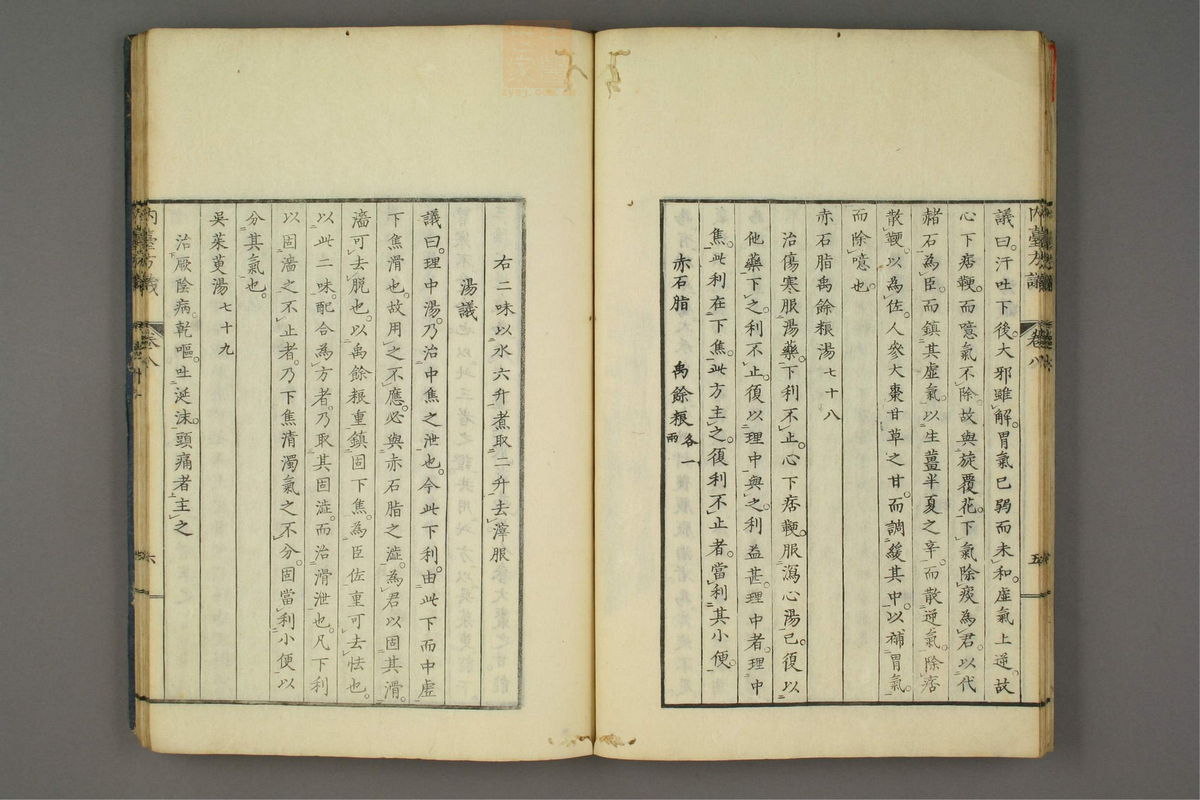 議曰。汗吐下後。大邪雖解。胃氣已弱而未和。虛氣上逆。故
心下痞鞕。而噫氣不除。故與旋覆花。下氣除痰為君。以代
赭石為臣。而鎮其虛氣。以生薑半夏之辛。而散逆氣。除痞
散鞕。以為佐。人參大棗甘草之甘。而調緩其中。以補胃氣。
而除噫也。
赤石脂禹餘粮湯七十八
治傷寒服湯藥。下利不止。心下痞鞕。服瀉心湯已。復以
他藥下之。利不止。復以理中與之。利益甚。理中者。理中
焦。此利在下焦。此方主之。復利不止者。當利其小便。
赤石脂 禹餘粮各一兩
內臺方議 卷八 五
右二味以水六升。煮取二升。去滓服
湯議
議曰。理中湯。乃治中焦之泄也。今此下利。由此下而中虛。
下焦滑也。故用之不應。必與赤石脂之澁。為君以固其滑。
濇可去脫也。以禹餘粮重鎮固下焦。為臣佐。重可去怯也。
以此二味。配合為方者。乃取其固澁。而治滑泄也。凡下利
以固濇之不止者。乃下焦清濁氣之不分。固當利小便。以
分其氣也。
吳茱萸湯七十九
治厥陰病。乾嘔。吐涎沫。頭痛者主之
內臺方議 卷八 六